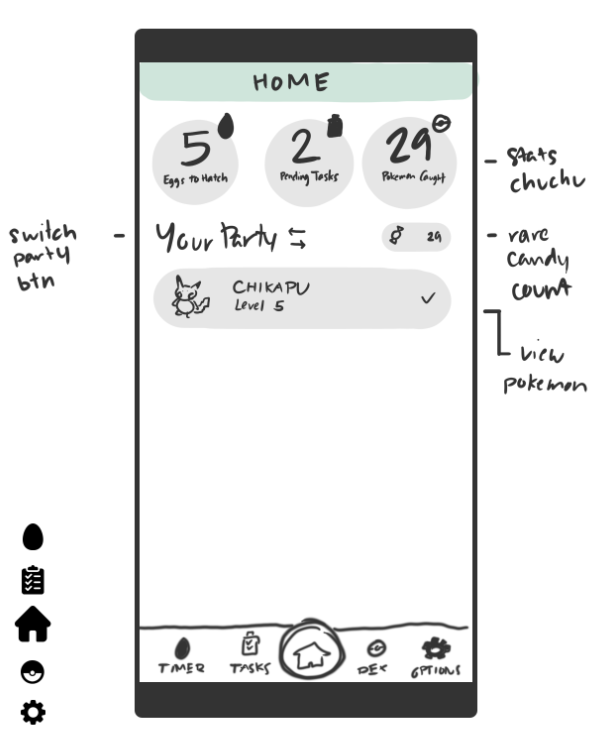 HOME
5
Eggs to Hatch
2
Pending Tasks
29
Pokemon Caught
stats
chuchu
switch
party
btn
Your Party
29
rare
candy
count
CHIKAPU
Level 5
view
pokemon
TIMER
TASKS
DEX
OPTIONS